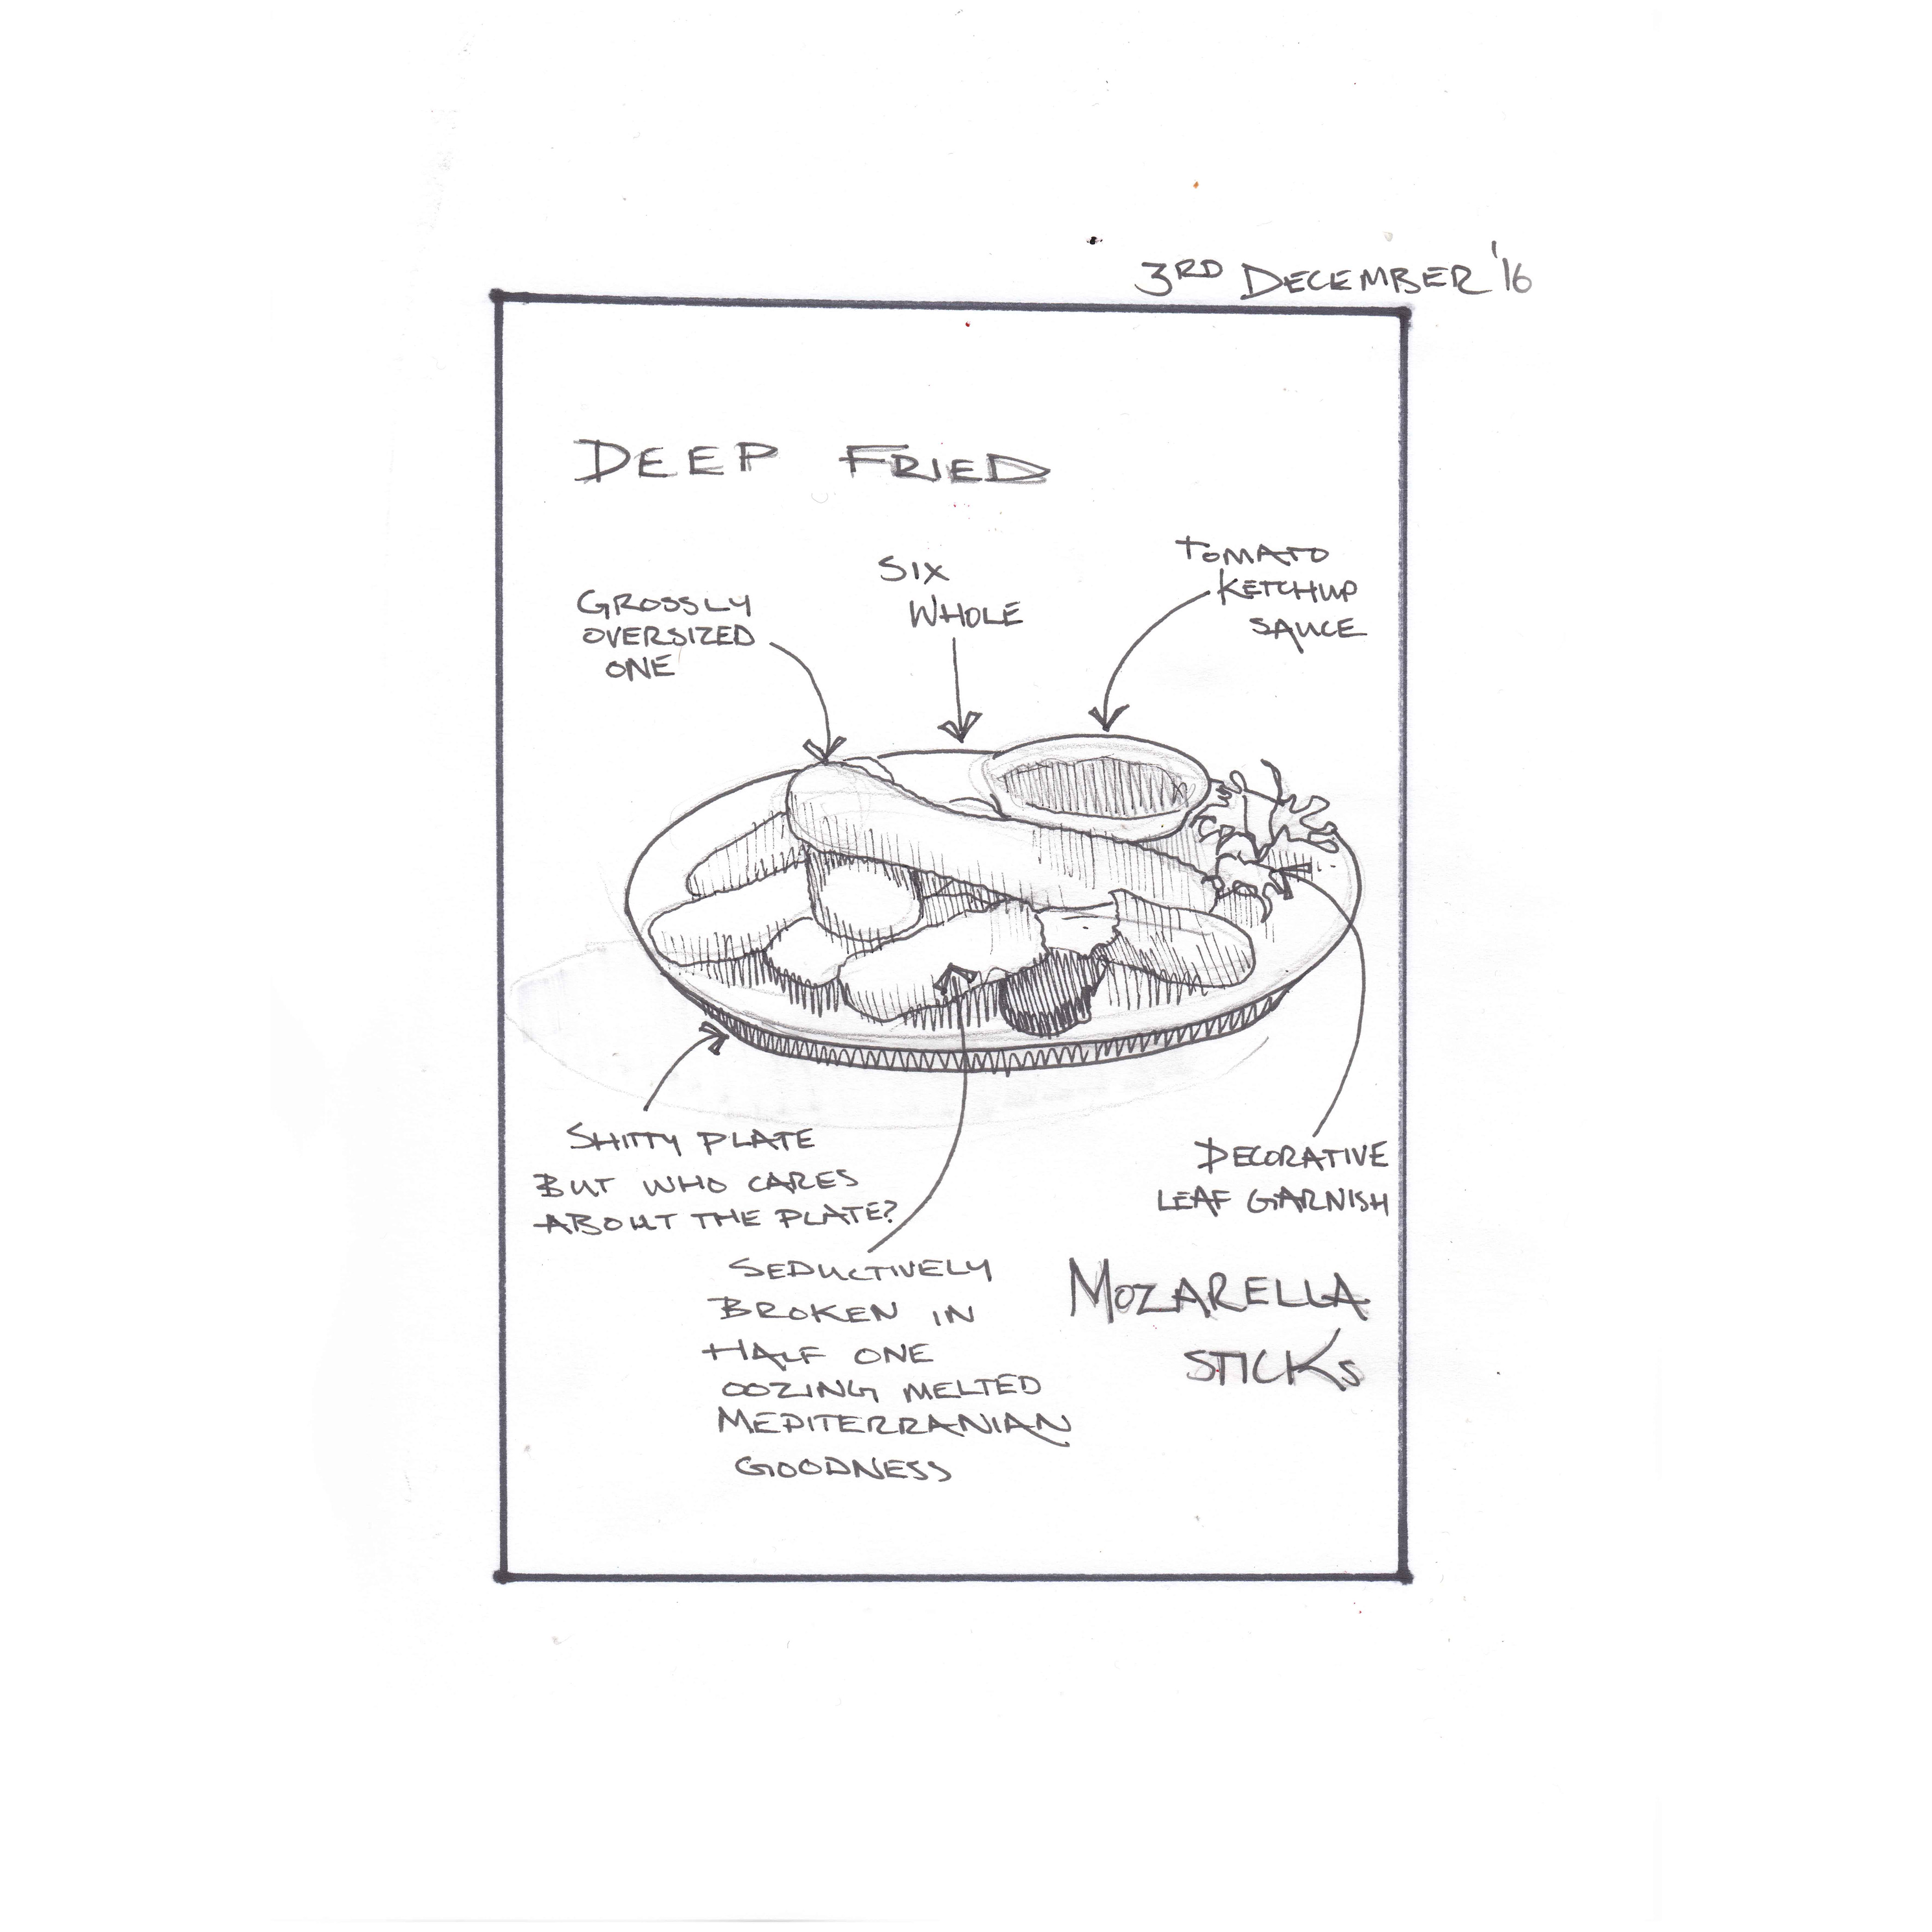 3RD DECEMBER '16
DEEP FRIED
GROSSLY
OVERSIZED
ONE
SIX
WHOLE
TOMATO
KETCHUP
SAUCE
SHITTY PLATE
BUT WHO CARES
ABOUT THE PLATE?
SEDUCTIVELY
BROKEN IN
HALF ONE
OOZING MELTED
MEDITERRANIAN
GOODNESS
DECORATIVE
LEAF GARNISH
MOZARELLA
STICKS